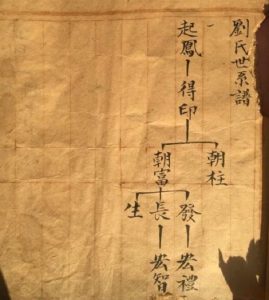 劉氏世系譜
起鳳
得印
朝柱
朝富
發
長
生
宏禮
宏智